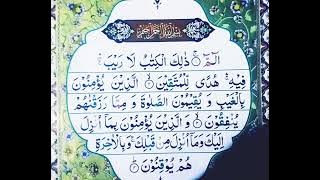 بِسْمِ اللهِ الرَّحْمٰنِ الرَّحِيْمِ
الٓمّٓ ۚ ذٰلِكَ الْكِتٰبُ لَا رَيْبَ
فِيْهِ ۛ هُدًى لِّلْمُتَّقِيْنَ ۙ الَّذِيْنَ يُؤْمِنُوْنَ
بِالْغَيْبِ وَ يُقِيْمُوْنَ الصَّلٰوةَ وَ مِمَّا رَزَقْنٰهُمْ
يُنْفِقُوْنَ ۙ وَ الَّذِيْنَ يُؤْمِنُوْنَ بِمَاۤ اُنْزِلَ
اِلَيْكَ وَمَاۤ اُنْزِلَ مِنْ قَبْلِكَ وَبِالْاٰخِرَةِ
هُمْ يُوْقِنُوْنَ